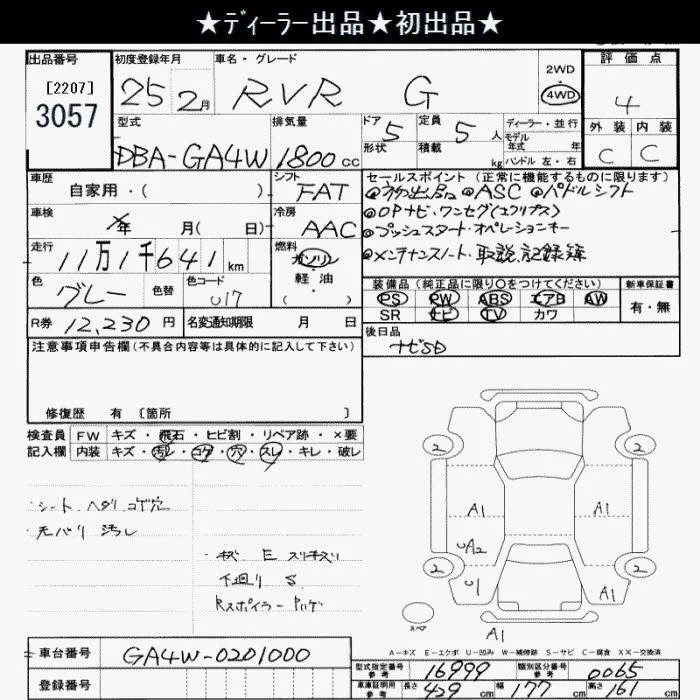 ★ディーラー出品★初出品★
出品番号 初度登録年月 車名・グレード 2WD 評価点
[2207] 25 2月 RVR G 4WD 4
3057
型式 排気量 ドア 5 定員 5 人 ディーラー・並行 外装 内装
モデル年式 年
DBA-GA4W 1800 cc 形状 積載 kg ハンドル 左・右 C C
車歴 シフト セールスポイント (正常に機能するものに限ります)
自家用・( ) FAT ◎初出品 ◎ASC ◎パドルシフト
車検 冷房 ◎OPナビ・ワンセグ(エクリプス)
年 月( 日) AAC ◎プッシュスタート・オペレーションキー
走行 燃料 ◎メンテナンスノート・取説、記録簿
11万1千641 km ガソリン
色 色替 色コード 軽・油 装備品(純正品に限り〇をつけてください) 新車保証書
グレー U17 ( ) PS PW ABS エアB AW 有・無
SR ナビ TV カワ
R券 12,230 円 名変通知期限 月 日 後日品
注意事項申告欄(不具合内容等は具体的に記入して下さい) ナビSD
修復歴 有 〔箇所 〕
検査員 FW キズ・飛石・ヒビ割・リペア跡・×要
記入欄 内装 キズ・汚レ・コゲ・穴・スレ・キレ・破レ
・シート ヘタリ コゲ穴
・天バリ 汚レ
・キズ E スリキズリ
下廻リ S
Rスポイラー
2 2
A1 A1
UA2
2 2
U1 A1
スペア
A1
A-キズ E-エクボ U-凹み W-補修跡 S-サビ C-腐食 XX-交換済
車台番号 GA4W-0201000
型式指定番号参考 16999 類別区分番号参考 0065
登録番号
車庫証明用参考 長さ 429 cm 幅 177 cm 高さ 161 cm